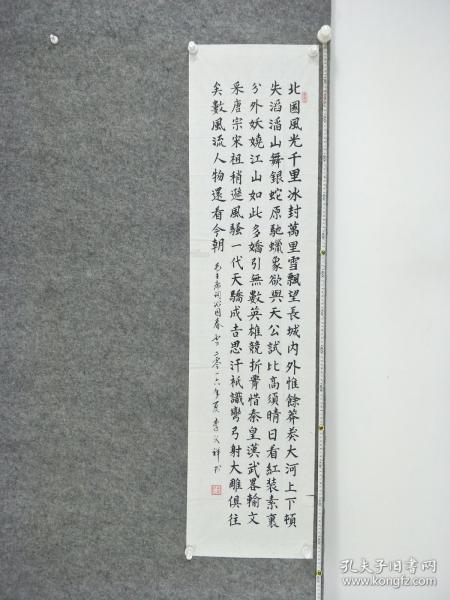 北國風光千里冰封萬里雪飄望長城內外惟餘莽莽大河上下頓
失滔滔山舞銀蛇原馳蠟象欲與天公試比高須晴日看紅裝素裹
分外妖嬈江山如此多嬌引無數英雄競折腰惜秦皇漢武畧輸文
采唐宗宋祖稍遜風騷一代天驕成吉思汗祇識彎弓射大雕俱往
矣數風流人物還看今朝
毛主席詞沁園春雪二零一六年夏李文祥书
孔夫子旧书网
www.kongfz.com